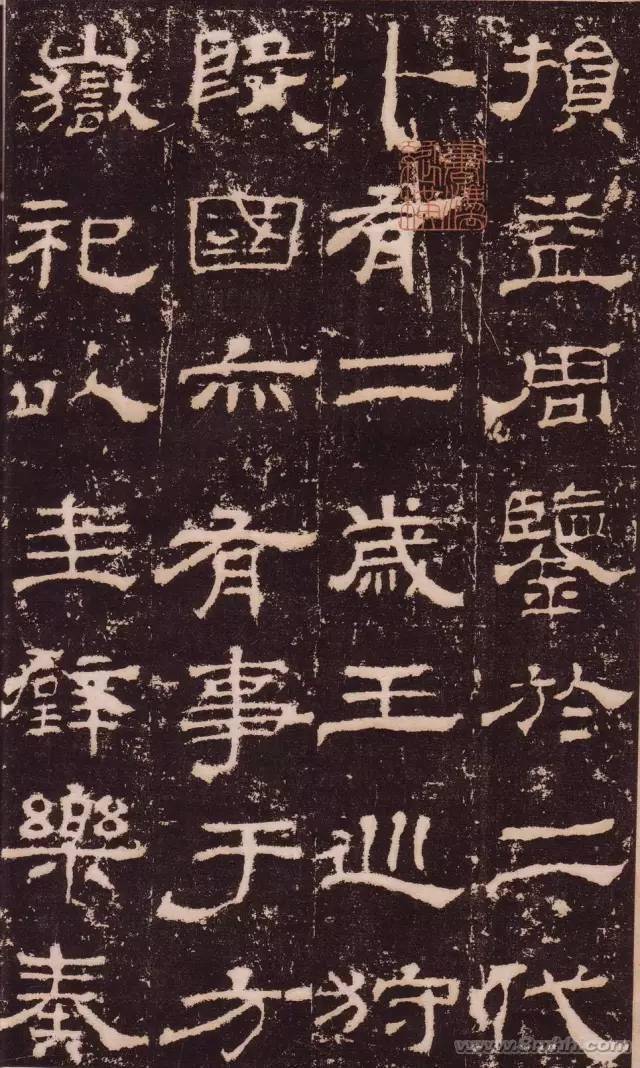 損益周鑒於二代
十有二歲王巡狩
殷國亦有事于方
嶽祀以圭璧樂奏